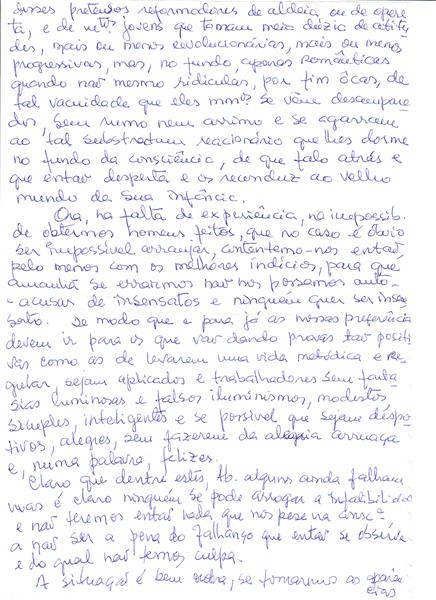 desses pretensos reformadores de aldeia ou de opere-
ta, e de mtos jovens que tomam meia dúzia de atitu-
des, mais ou menos revolucionárias, mais ou menos
progressivas, mas, no fundo, apenas românticas
quando não mesmo ridículas, por fim ôcas, de
tal vacuidade que eles mmos se vêem desampara-
dos, sem rumo nem arrimo e se agarram
ao tal substractum reacionário que lhes dorme
no fundo da consciência, de que falo atrás e
que então desperta e os reconduz ao velho
mundo da sua infância.
Ora, na falta de experiência, na impossib.
de obtermos homens feitos, que no caso é óbvio
ser impossível arranjar, contentemo-nos então
pelo menos com os melhores indícios, para que
amanhã se errarmos não nos possamos auto-
-acusar de insensatos e ninguém quer ser insen-
sato. De modo que e para já as nossas preferências
devem ir para os que vão dando provas tão positi-
vas como as de levarem uma vida metódica e re-
gular, sejam aplicados e trabalhadores sem fanta-
sias luminosas e falsos iluminismos, modestos
simples, inteligentes e se possível que sejam despor-
tivos, alegres, sem fazerem da alegria arruaça
e, numa palavra, felizes.
Claro que dentre estes, tb. alguns ainda falham
mas é claro ninguém se pode arrogar a infalibilidade
e não teremos então nada que nos pese na consca,
a não ser a pena do falhanço que então se observe
e do qual não temos culpa.
A situação é bem outra, se tomarmos as aparên-
cias